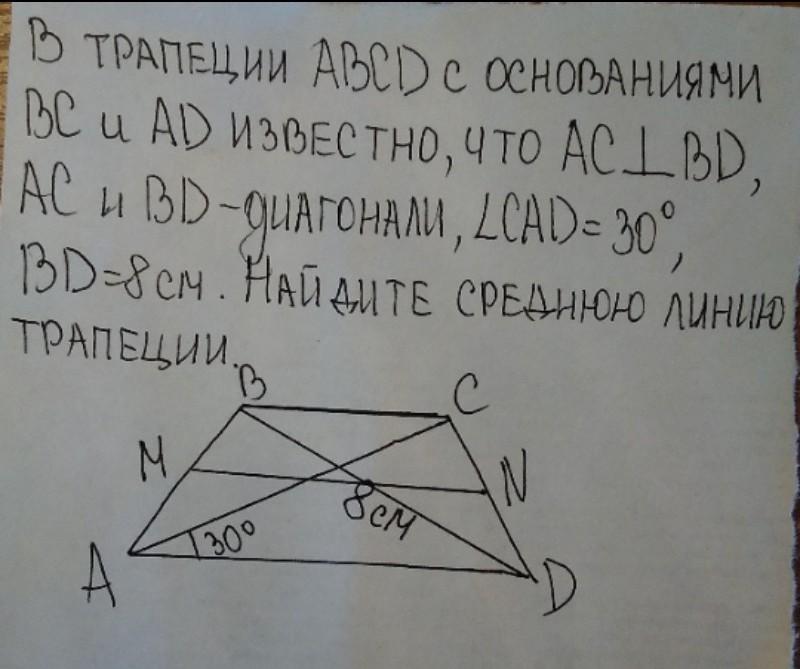 В ТРАПЕЦИИ ABCD С ОСНОВАНИЯМИ
BC И AD ИЗВЕСТНО, ЧТО AC⊥BD,
AC И BD-ДИАГОНАЛИ, ∠CAD=30°,
BD=8см. НАЙДИТЕ СРЕДНЮЮ ЛИНИЮ
ТРАПЕЦИИ.
B
C
M
N
8см
30°
A
D